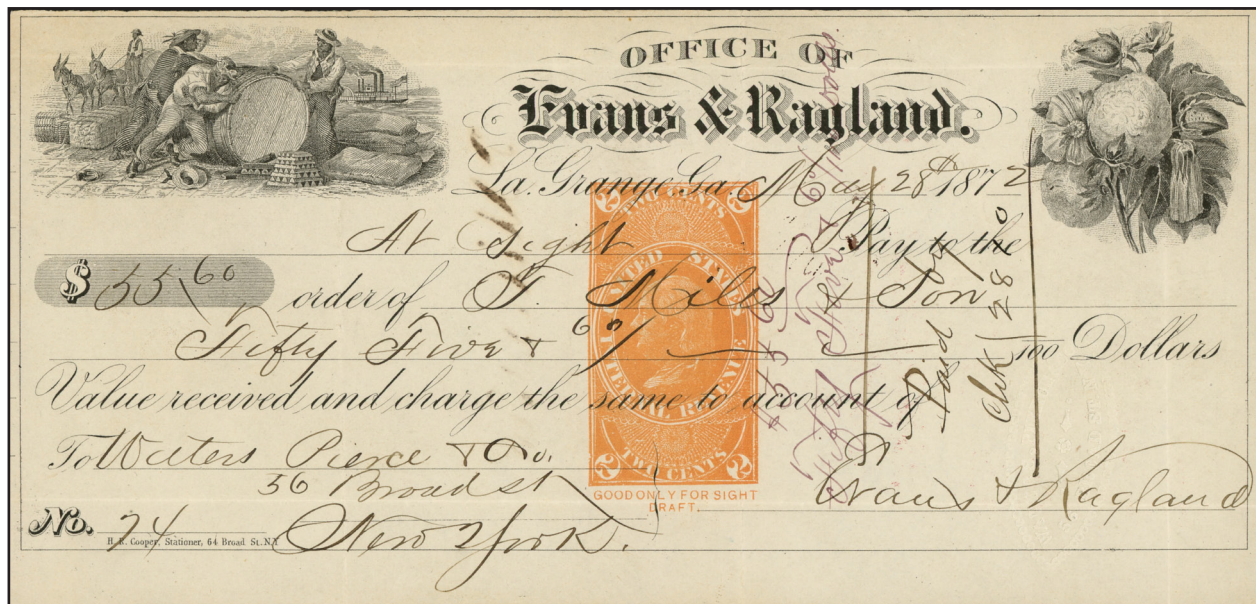 OFFICE OF
Evans & Ragland.
La. Grange, Ga. May 28th 1872
At Sight Pay to the
$ 55,60 order of T. Miles & Son
Fifty Five & 60/ 100 Dollars
Value received and charge the same to account of
To Waters Pierce & Co.
56 Broad st
No. 74 New York.
Evans & Ragland
H. R. Cooper, Stationer, 64 Broad St. N.Y
2 TWO CENTS 2
UNITED STATES
INTERNAL REVENUE
2 TWO CENTS 2
GOOD ONLY FOR SIGHT
DRAFT.
Paid
Chk 1280